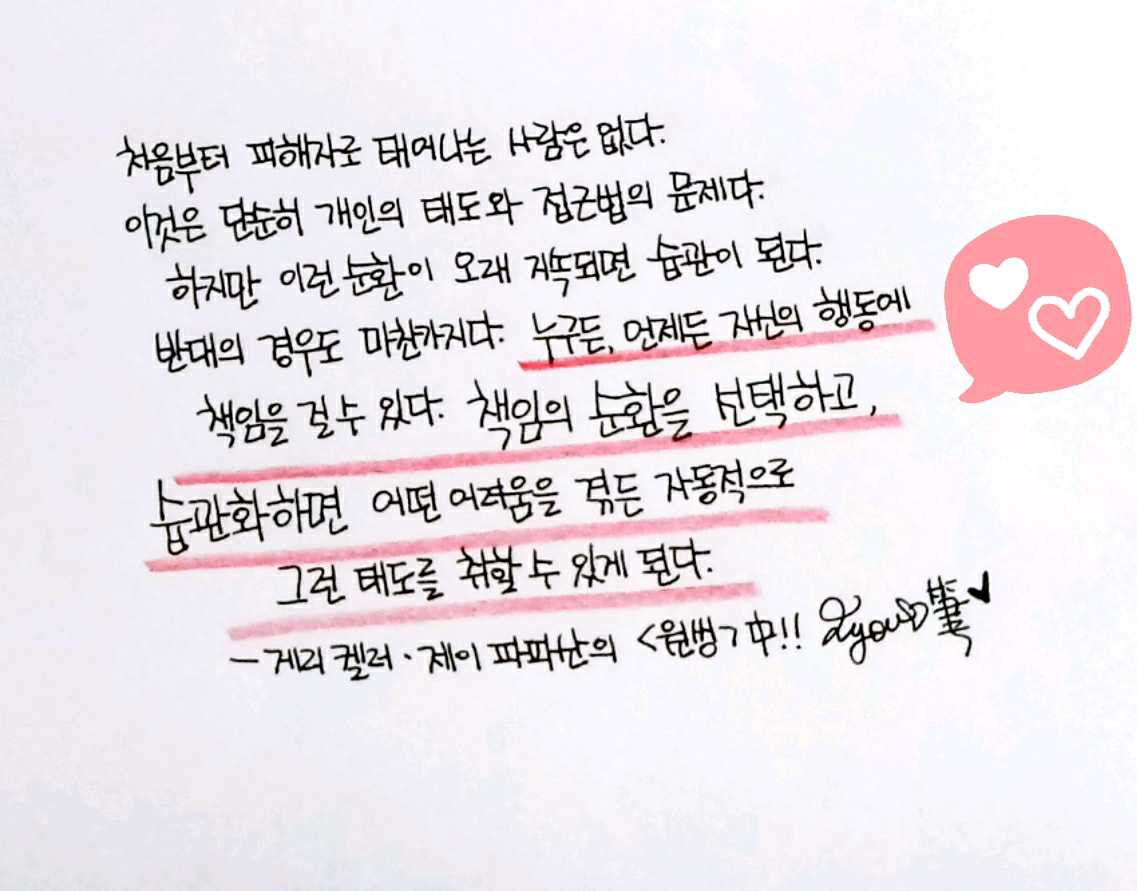 처음부터 피해자로 태어나는 사람은 없다.
이것은 단순히 개인의 태도와 접근법의 문제다.
하지만 이런 순환이 오래 지속되면 습관이 된다.
반대의 경우도 마찬가지다. 누구든, 언제든 자신의 행동에
책임을 걸 수 있다. 책임의 순환을 선택하고,
습관화하면 어떤 어려움을 겪든 자동적으로
그런 태도를 취할 수 있게 된다.
- 게리 켈러·제이 파파산의 <원씽> 中!!